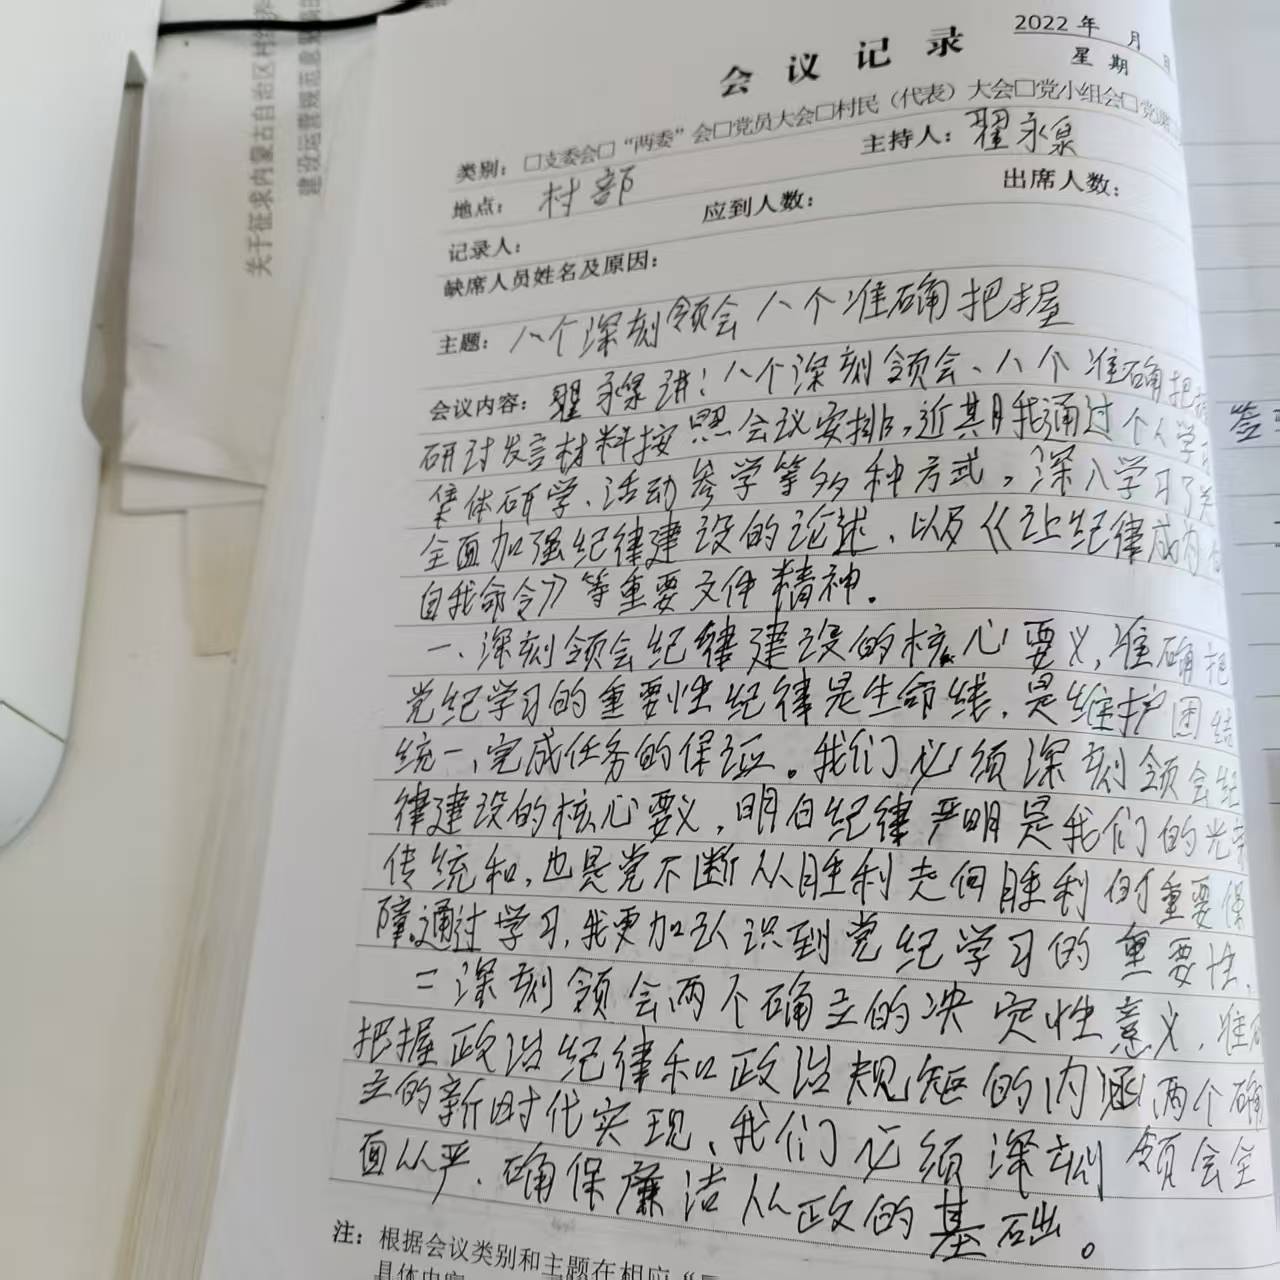 关于征求内蒙古自治区村经济
建设运营规范息
2022 年 月 日
会议记录
星期
类别：□支委会□“两委”会□党员大会□村民（代表）大会□党小组会□党课
地点：村部 主持人：翟永泉
记录人： 应到人数： 出席人数：
缺席人员姓名及原因：
主题：八个深刻领会八个准确把握
会议内容：翟永泉讲：八个深刻领会、八个准确把握
研讨发言材料按照会议安排，近期我通过个人学习
集体研学、活动参学等多种方式，深入学习了关
全面加强纪律建设的论述、以及《让纪律成为
自我命令》等重要文件精神。
一、深刻领会纪律建设的核心要义，准确把
党纪学习的重要性纪律是生命线，是维护团结
统一、完成任务的保证。我们必须深刻领会纪
律建设的核心要义，明白纪律严明是我们的光荣
传统和，也是党不断从胜利走向胜利的重要保
障。通过学习，我更加认识到党纪学习的重要性，
二深刻领会两个确立的决定性意义，准确
把握政治纪律和政治规矩的内涵两个确
立的新时代实现、我们必须深刻领会全
面从严、确保廉洁从政的基础。
注：根据会议类别和主题在相应“
具体内容